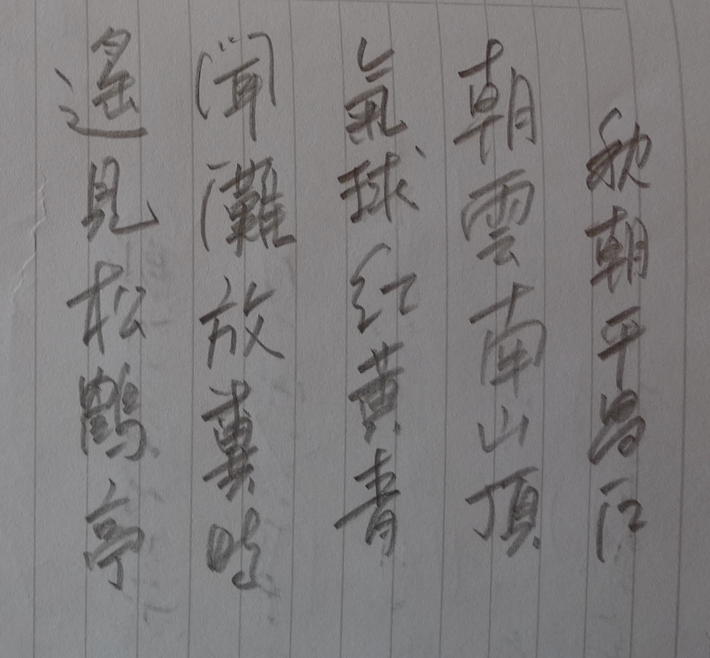 秋朝平昌江
朝雲南山頂
氣球红黄青
聞灘放
遙見松鶴亭